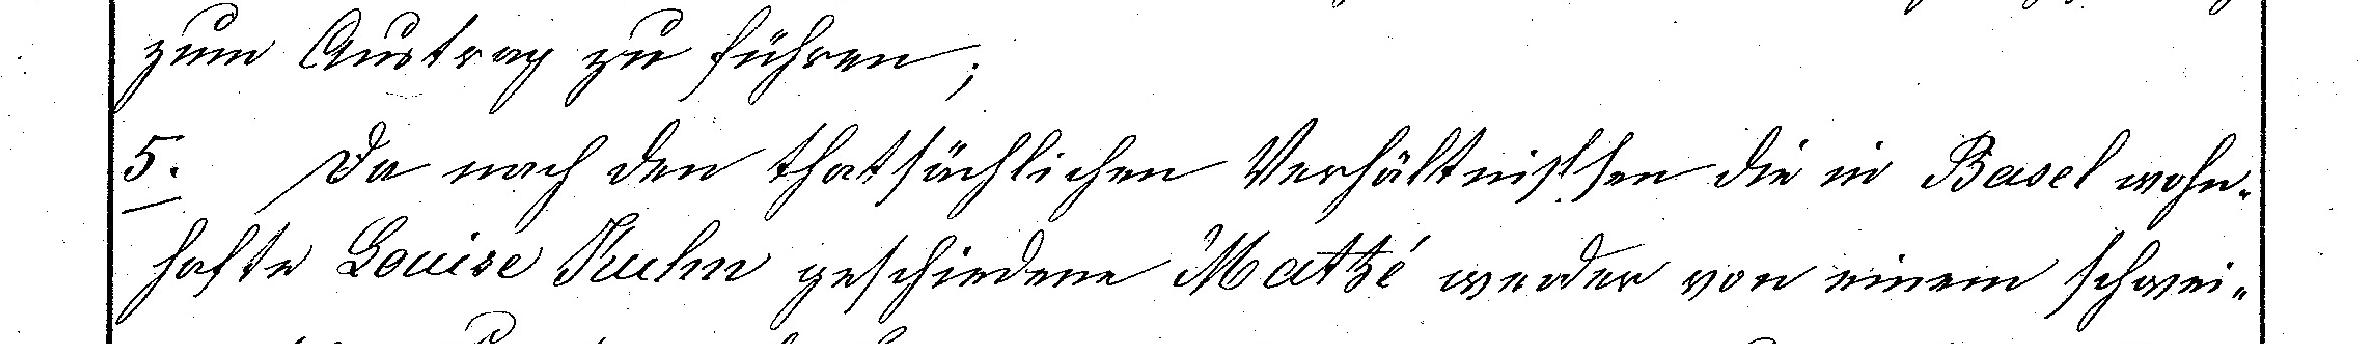 zum Austrag zu führen;
5. Da nach den thatsächlichen Verhältnissen die in Basel wohn-
hafte Louise Kuhn geschiedene Matzé weder von einem schwei-